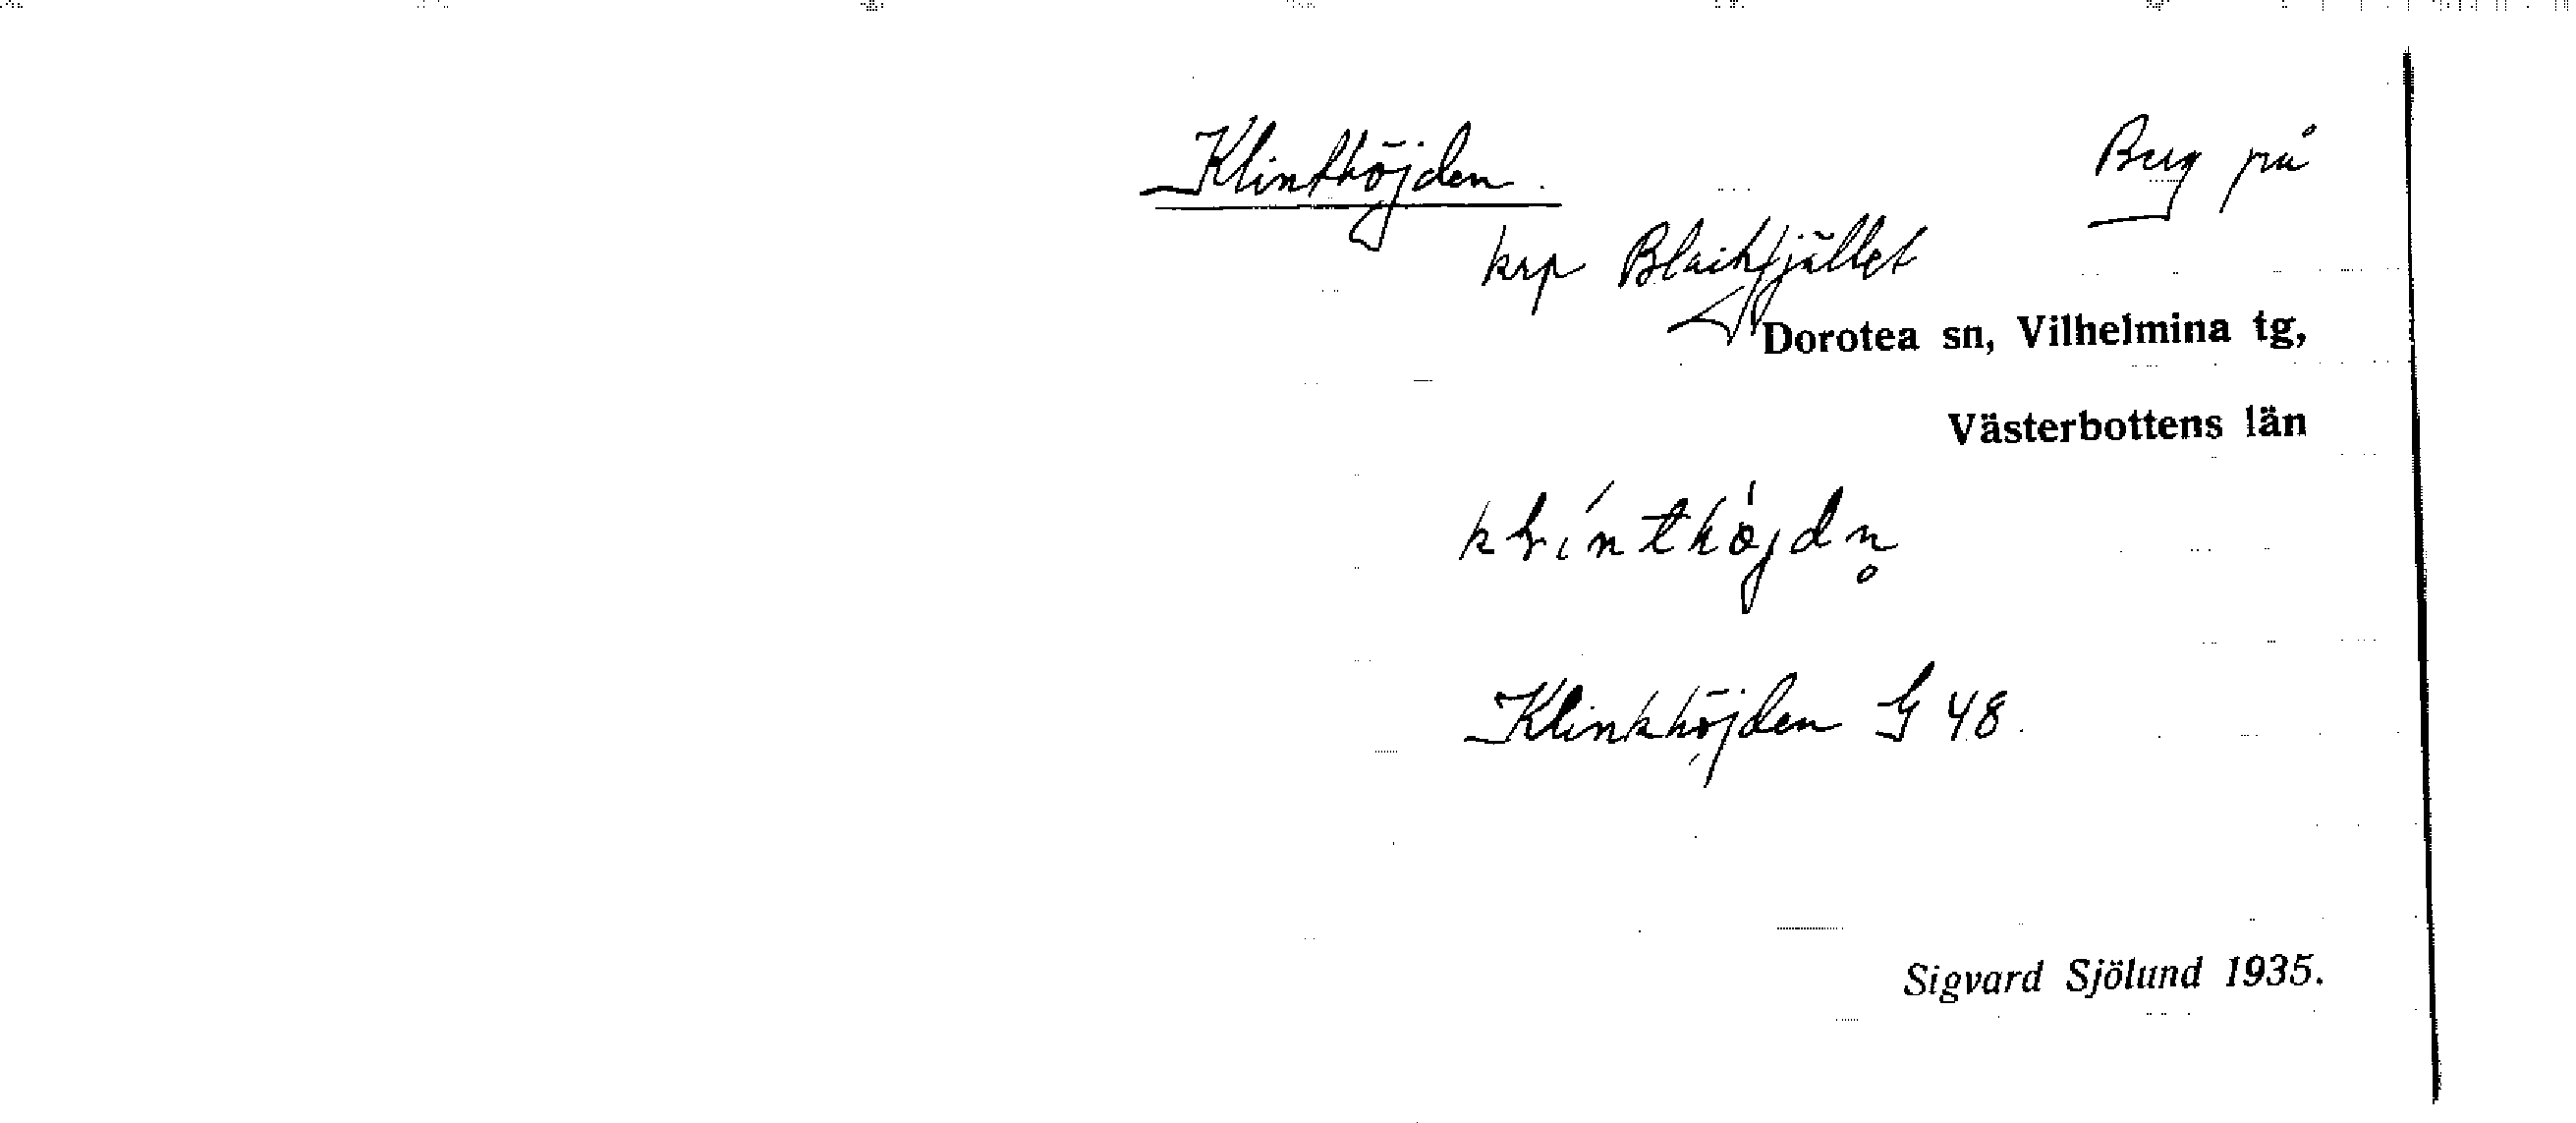 Klinthöjden. Berg på
krp Blaikfjället
Dorotea sn, Vilhelmina tg,
Västerbottens län
Klinkhöjden G 48.
Sigvard Sjölund 1935.